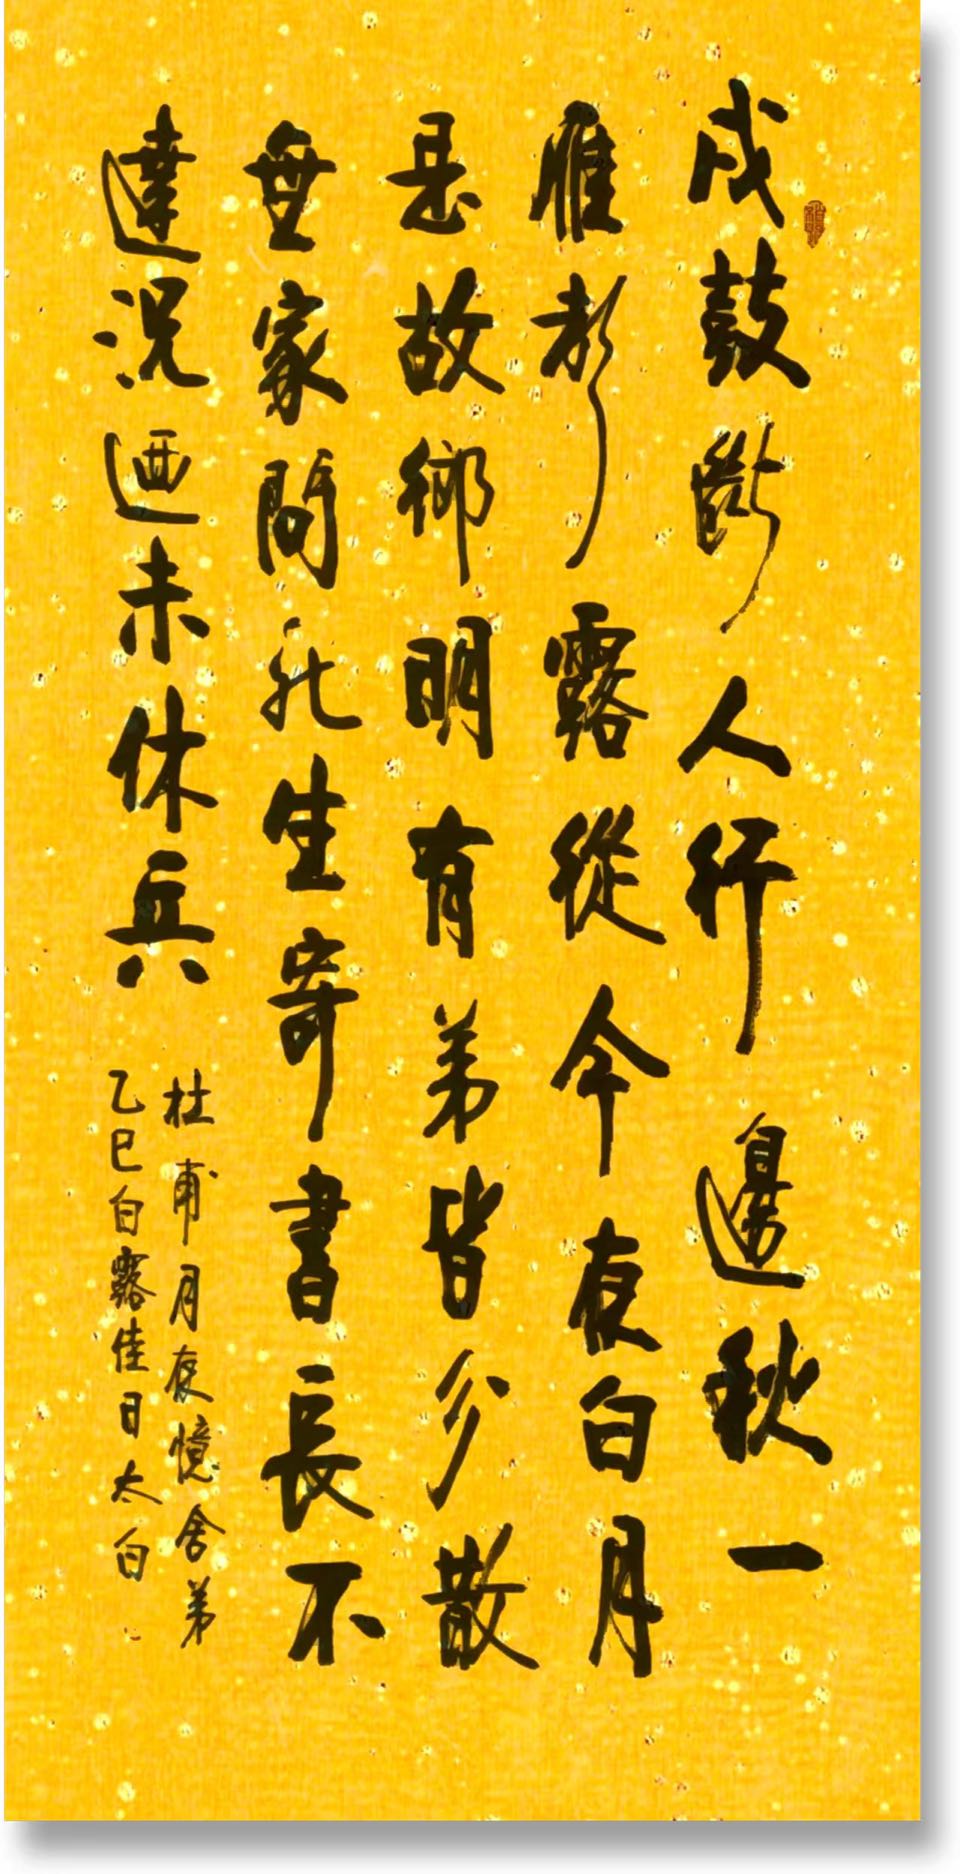 戍鼓斷人行邊秋一
雁聲露從今夜白月
是故鄉明有弟皆分散
無家問死生寄書長不
達況迺未休兵
杜甫月夜憶舍弟
乙巳白露佳日太白